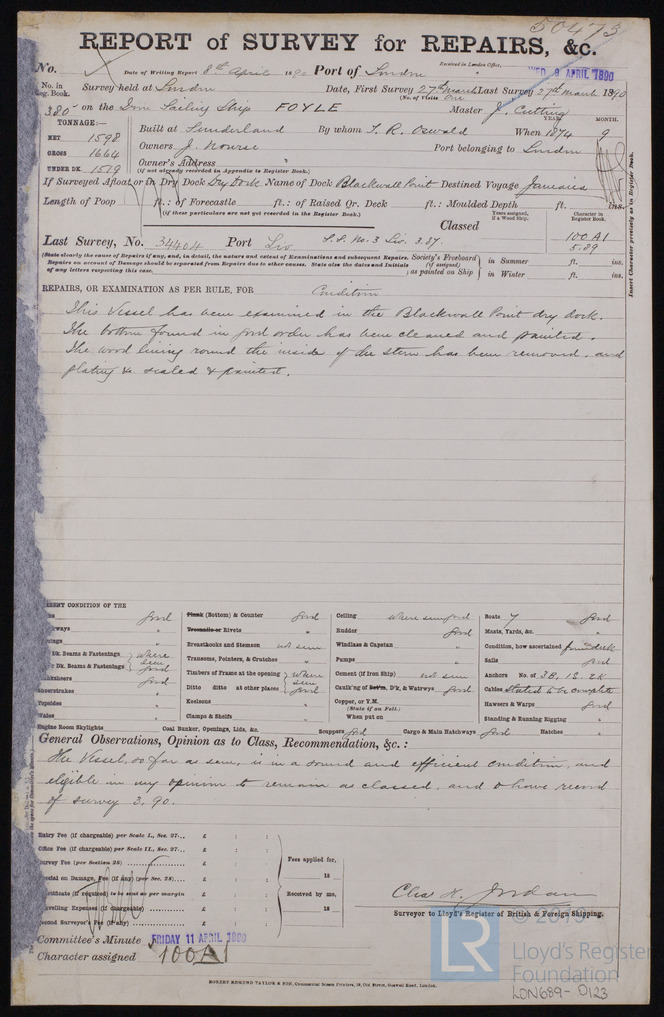 50473
REPORT of SURVEY for REPAIRS, &c.
Received in London Office,
No. Date of Writing Report 8th April 1890 Port of London WED. 9 APRIL 1890
No. in Reg. Book. Survey held at London Date, First Survey 27th March Last Survey 27th March 1890
(No. of Visits One
380 on the Iron Sailing Ship FOYLE Master J. Cutting
TONNAGE:— YEAR. MONTH.
NET 1598 Built at Sunderland By whom T. R. Oswald When 1874 9
GROSS 1664 Owners J. Nourse Port belonging to London
UNDER DK. 1519 Owner's Address "
(If not already recorded in Appendix to Register Book.)
If Surveyed Afloat or in Dry Dock Dry Dock Name of Dock Blackwall Point Destined Voyage Jamaica
Length of Poop ft.: of Forecastle ft.: of Raised Qr. Deck ft.: Moulded Depth ft. ins.
(If these particulars are not yet recorded in the Register Book.)
Years assigned, if a Wood Ship. Character in Register Book.
Classed 100 A1
Last Survey, No. 34404 Port Liv. S.S. No. 3 Liv. 3.87. 5.89
(State clearly the cause of Repairs if any, and, in detail, the nature and extent of Examinations and subsequent Repairs.
Repairs on account of Damage should be separated from Repairs due to other causes. State also the dates and Initials
of any letters respecting this case.
Society's Freeboard (if assigned) as painted on Ship
in Summer ft. ins.
in Winter ft. ins.
Insert Character precisely as in Register Book.
REPAIRS, OR EXAMINATION AS PER RULE, FOR Condition
This Vessel has been examined in the Blackwall Point dry dock.
The bottom found in good order has been cleaned and painted.
The wood lining round the inside of the stern has been removed, and
plating &c scaled & painted.
PRESENT CONDITION OF THE
good Plank (Bottom) & Counter good Ceiling where seen good Boats 7 good
Treenails or Rivets " Rudder good Masts, Yards, &c. "
Breasthooks and Stemson not seen Windlass & Capstan " Condition, how ascertained from deck
Dk. Beams & Fastenings where seen good Transoms, Pointers, & Crutches " Pumps " Sails good
Dk. Beams & Fastenings Timbers of Frame at the opening where seen good Cement (if Iron Ship) not seen Anchors No. of 3B, 1S. 2K
good Ditto ditto at other places Caulk'ng of Bot'm, D'k, & Watrwys good Cables Stated to be complete
Keelsons " Copper, or Y.M. Hawsers & Warps good
Topsides " (State if on Felt.)
Wales " Clamps & Shelfs " When put on Standing & Running Rigging "
Engine Room Skylights Coal Bunker, Openings, Lids, &c. Scuppers good Cargo & Main Hatchways good Hatches "
General Observations, Opinion as to Class, Recommendation, &c.:
The Vessel, so far as seen, is in a sound and efficient condition, and
eligible in my opinion to remain as classed, and to have record
of survey 3.90.
Entry Fee (if chargeable) per Scale I., Sec. 27... £ : :
Office Fee (if chargeable) per Scale II., Sec. 27... £ : :
Survey Fee (per Section 28) £ : : Fees applied for,
Special on Damage, Fee (if any) (per Sec. 28)... £ : : 18
Certificate (if required) to be sent as per margin £ : : Received by me,
Travelling Expenses (if chargeable) £ : : 18
Second Surveyor's Fee (if any) £ : :
Chas H. Jordan
Surveyor to Lloyd's Register of British & Foreign Shipping.
Committee's Minute FRIDAY 11 APRIL 1890
Character assigned 100A1
LR
© 2019
Lloyd's Register
Foundation
LON689-0123
ROBERT EDMUND TAYLOR & SON, Commercial Steam Printers, 19, Old Street, Goswell Road, London.